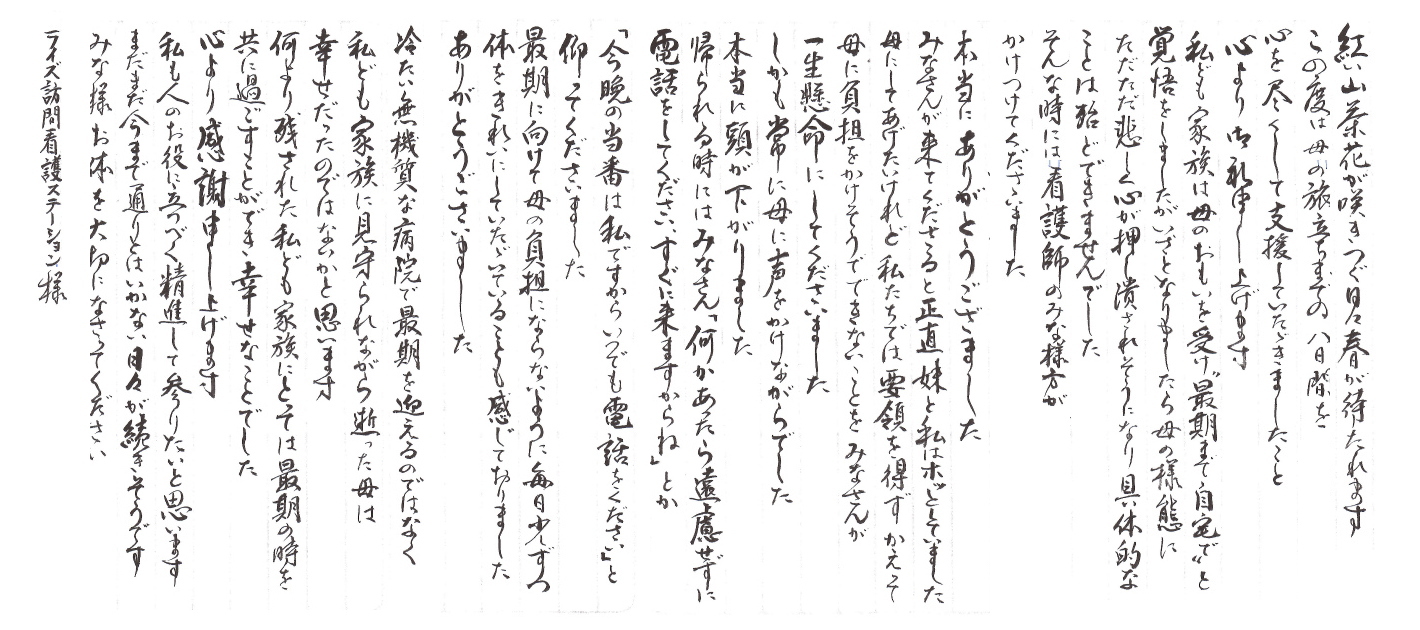 紅い山茶花が咲きつぐ日々春が待たれます
この度は母の旅立ちまでの八日間を
心を尽くして支援していただきましたこと
心より御礼申し上げます
私ども家族は母のおもいを受け〝最期まで自宅で〟と
覚悟をしましたがいざとなりましたら母の様態に
ただただ悲しく心が押し潰されそうになり具体的な
ことは殆どできませんでした
そんな時には看護師のみな様方が
かけつけてくださいました
本当にありがとうございました
みなさんが来てくださると正直妹と私はホッとしていました
母にしてあげたいけれど私たちでは要領を得ずかえって
母に負担をかけそうでできないことをみなさんが
一生懸命にしてくださいました
しかも常に母に声をかけながらでした
本当に頭が下がりました
帰られる時にはみなさん「何かあったら遠慮せずに
電話をしてください、すぐに来ますからね」とか
「今晩の当番は私ですからいつでも電話をください」と
仰ってくださいました
最期に向けて母の負担にならないように毎日少しずつ
体をきれいにしていただいていることも感じておりました
ありがとうございました
冷たい無機質な病院で最期を迎えるのではなく
私ども家族に見守られながら逝った母は
幸せだったのではないかと思います
何より残された私ども家族にとっては最期の時を
共に過ごすことができ幸せなことでした
心より感謝申し上げます
私も人のお役に立つべく精進して参りたいと思います
まだまだ今まで通りとはいかない日々が続きそうです
みな様お体を大切になさってください
ライズ訪問看護ステーション様